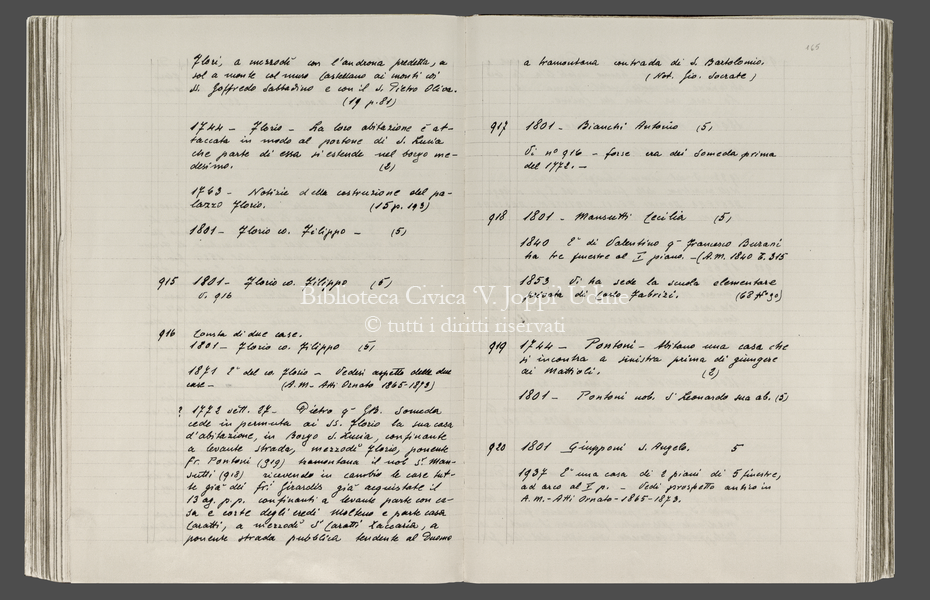 Flori, a mezzodì con l'androna predetta, a
sol a monte col muro Castellano ai monti coi
SS. Goffredo Sabbadino e con il S. Pietro Oliva.
(19 p. 81)
1744 - Florio - La loro abitazione è at-
taccata in modo al portone di S. Lucia
che parte di essa si estende nel borgo me-
desimo. (2)
1763 - Notizie della costruzione del pa-
lazzo Florio. (15 p. 193)
1801 - Florio co. Filippo - (5)
915 1801 - Florio co. Filippo (5)
V. 916
916 Consta di due case.
1801 - Florio co. Filippo (5)
1871 È del co. Florio - Vedesi aspetto delle due
case - (A.M. - Atti Ornato 1865-1873)
? 1772 sett. 27 - Pietro q. GB. Someda
cede in permuta ai SS. Florio la sua casa
d'abitazione, in Borgo S. Lucia, confinante
a levante strada, mezzodì Florio, ponente
Fr. Pontoni (919) tramontana il nob. Sr. Man-
sutti (918) ricevendo in cambio le case tut-
te già dei fri Girardis già acquistate il
13 ag. p.p. confinanti a levante parte con ca-
sa e corte degli eredi Molteno e parte casa
Caratti, a mezzodì Sr Caratti Zaccaria, a
ponente strada pubblica tendente al Duomo
165
a tramontana contrada di S. Bartolomio.
(Not. Gio. Socrate)
917 1801 - Bianchi Antonio (5)
V. n° 916 - forse era dei Someda prima
del 1772. -
918 1801 - Mansutti Cecilia (5)
1840 È di Valentino q. Francesco Burani
ha tre finestre al I piano. - (A.M. 1840 F. 315
1853 Vi ha sede la scuola elementare
privata di Carlo Fabrizi. (68 N° 90)
919 1744 - Pontoni - Abitano una casa che
si incontra a sinistra prima di giungere
ai Mattioli. (2)
1801 - Pontoni nob. Sr Leonardo sua ab. (5)
920 1801 Giupponi S. Angelo. 5
1937 È una casa di 2 piani di 5 finestre,
ad arco al I p. - Vedi prospetto antico in
A.M. - Atti Ornato - 1865-1873.
Biblioteca Civica "V. Joppi" Udine
© tutti i diritti riservati